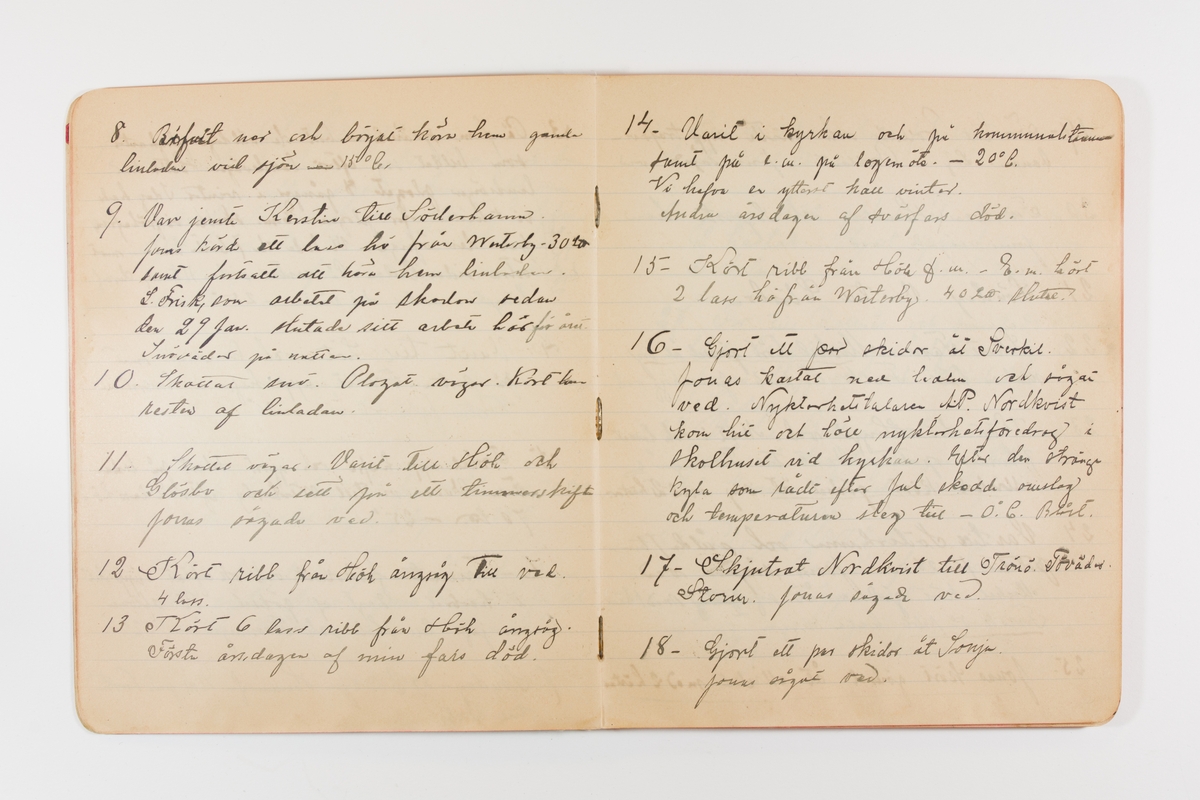 8. ner och börjat köra hem gamla
linladan vid sjön — 15°C.
9. Var jemte Kerstin till Söderhamn.
Jonas körd ett lass hö från Westerby - 30
samt fortsatt att köra hem linladan.
L. Frisk, som arbetat på skodon sedan
den 29 Jan. slutade sitt arbete här för året.
Snöväder på natten.
10. Skottat snö. Plogat vägar. Kört hem
resten af linladan.
11. Skottat vägar. Varit till Höh och
Glösbo och sett på ett timmerskifte
Jonas sågade ved.
12 Kört ribb från Höh ångsåg till ved.
4 lass.
13 Kört 6 lass ribb från Höh ångsåg.
Första årsdagen af min fars död.
14- Varit i kyrkan och på kommunalstämma
samt på e.m. på logemöte. - 20°C.
Vi hafva en ytterst kall vinter.
Andra årsdagen af svärfars död.
15- Kört ribb från Höh f.m. - E.m. kört
2 lass hö från Westerby. 40
16- Gjort ett par skidor åt Sverkel.
Jonas kastat ned halm och sågat
ved. Nykterhetstalaren A.P. Nordkvist
kom hit och höll nykterhetsföredrag i
skolhuset vid kyrkan. Efter den stränga
kyla som rådt efter Jul skedde omslag
och temperaturen steg till - 0°C. Blåst.
17- Skjutsat Nordkvist till Trönö. Töväder.
Storm. Jonas sågade ved.
18- Gjort ett par skidor åt Sonja.
Jonas sågat ved.